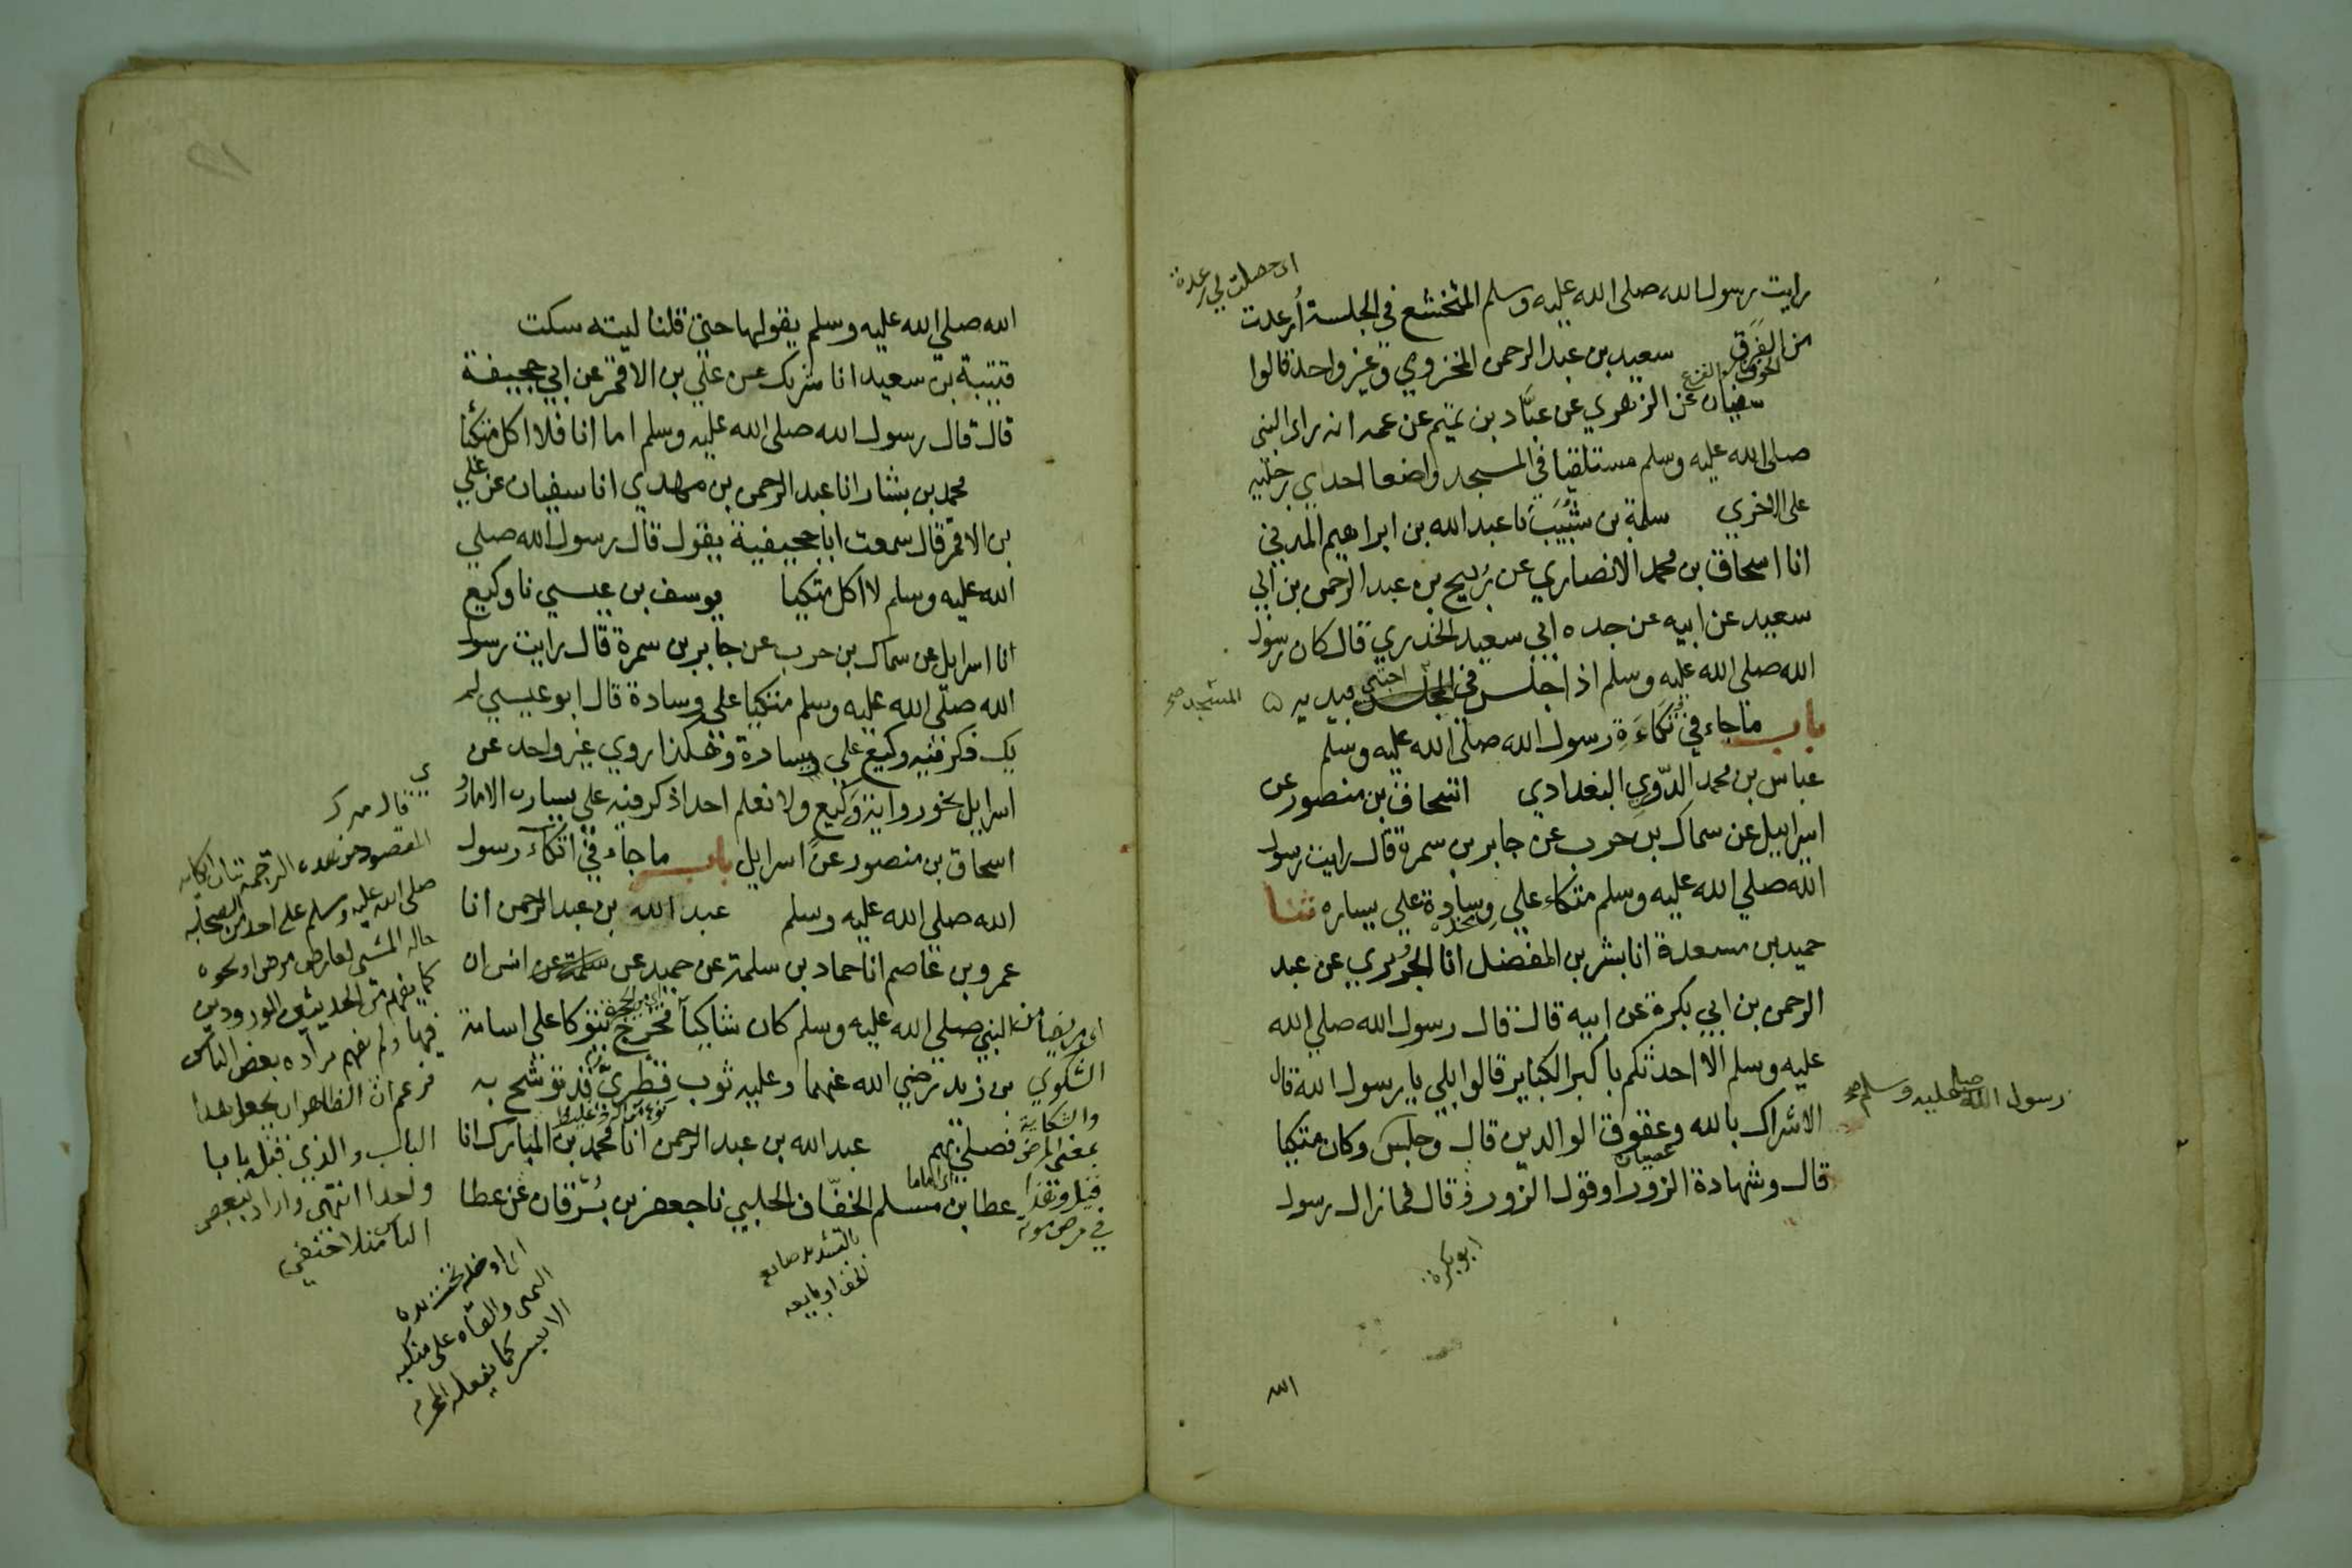 رايت رسول الله صلى الله عليه وسلم المتخشع في الجلسة أُرعدت
اي حصلت لي رعدة
من الفَرَق سعيد بن عبد الرحمن المخزومي وغير واحد قالوا
الخوف والفزع
سفيان عن الزهري عن عبَّاد بن تميم عن عمه انه راى النبي
صلى الله عليه وسلم مستلقيا في المسجد واضعا احدي رجليه
على الاخري سلمة بن شَبيب نا عبد الله بن ابراهيم المدني
انا اسحاق بن محمد الانصاري عن رُبيح بن عبد الرحمن بن ابي
سعيد عن ابيه عن جده ابي سعيد الخدري قال كان رسول
الله صلى الله عليه وسلم اذا جلس في المجلس احتبي بيديه
المسجد صح
باب ماجاء في تُكَاءَةِ رسول الله صلى الله عليه وسلم
عباس بن محمد الدّوري البغدادي اسحاق بن منصور عن
اسراييل عن سماك بن حرب عن جابر بن سمرة قال رايت رسول
الله صلي الله عليه وسلم متكاء علي وسادة علي يساره ثنا
مخده
حميد بن مسعدة انا بشر بن المفضل انا الجريري عن عبد
الرحمن بن ابي بكرة عن ابيه قال قال رسول الله صلي الله
عليه وسلم الا احدثكم باكبر الكباير قالوا بلي يا رسول الله قال
رسول الله صلى عليه وسلم صح
الاشراك بالله وعقوق الوالدين قال وجلس وكان متكيا
عصيان
قال وشهادة الزور او قول الزور قال فمازال رسول
ابو بكرة
الله
الله صلي الله عليه وسلم يقولها حتى قلنا ليته سكت
قتيبة بن سعيد انا شريك عن علي بن الاقمر عن ابي جحيفة
قال قال رسول الله صلى الله عليه وسلم اما انا فلا اكل متكئا
محمد بن بشار انا عبد الرحمن بن مهدي انا سفيان عن علي
بن الاقمر قال سمعت ابا جحيفة يقول قال رسول الله صلي
الله عليه وسلم لا اكل متكيا يوسف بن عيسي نا وكيع
انا اسرايل عن سماك بن حرب عن جابر بن سمرة قال رايت رسول
الله صلّى الله عليه وسلم متكيا على وسادة قال ابو عيسي لم
يذكر فيه وكيع علي يساره وهكذا روي غير واحد عن
اسرايل نحو رواية وكيع ولا نعلم احدا ذكر فيه علي يساره الا ما رُ
اسحاق بن منصور عن اسرايل باب ماجاء في اتكاء رسول
الله صلى الله عليه وسلم عبد الله بن عبد الرحمن انا
عمرو بن عاصم انا حماد بن سلمة عن حميد عن انس ان
النبي صلي الله عليه وسلم كان شاكيا فخرج يتوكا علي اسامة
بن زيد رضي الله عنهما وعليه ثوب قطريّ قد توشح به
فصلى بهم عبد الله بن عبد الرحمن انا محمد بن المبارك انا
اي اماما
عطا بن مسلم الخفّاف الحلبي نا جعفر بن بُرقان عن عطا
اي مريضا من
الشكوي
والشكاية
بمعنى المرض
في مرض موته
بالتشديد صانع
الخف او بايعه
قال ميرك
المقصود من هذه الترجمة بيان اتكايه
صلى الله عليه وسلم على احد من الصحابة
حالة المشي لعارض مرض او نحوه
كما يفهم من الحديثين الموردين
فيها ولم يفهم مراده بعض الناس
فزعم ان الظاهر ان يجعل هذا
الباب والذي قبله بابا
واحدا انتهى واراد ببعض
الناس
اي ادخله تحت يده
اليمنى والقاه على منكبه
الايسر كما يفعله المحرم